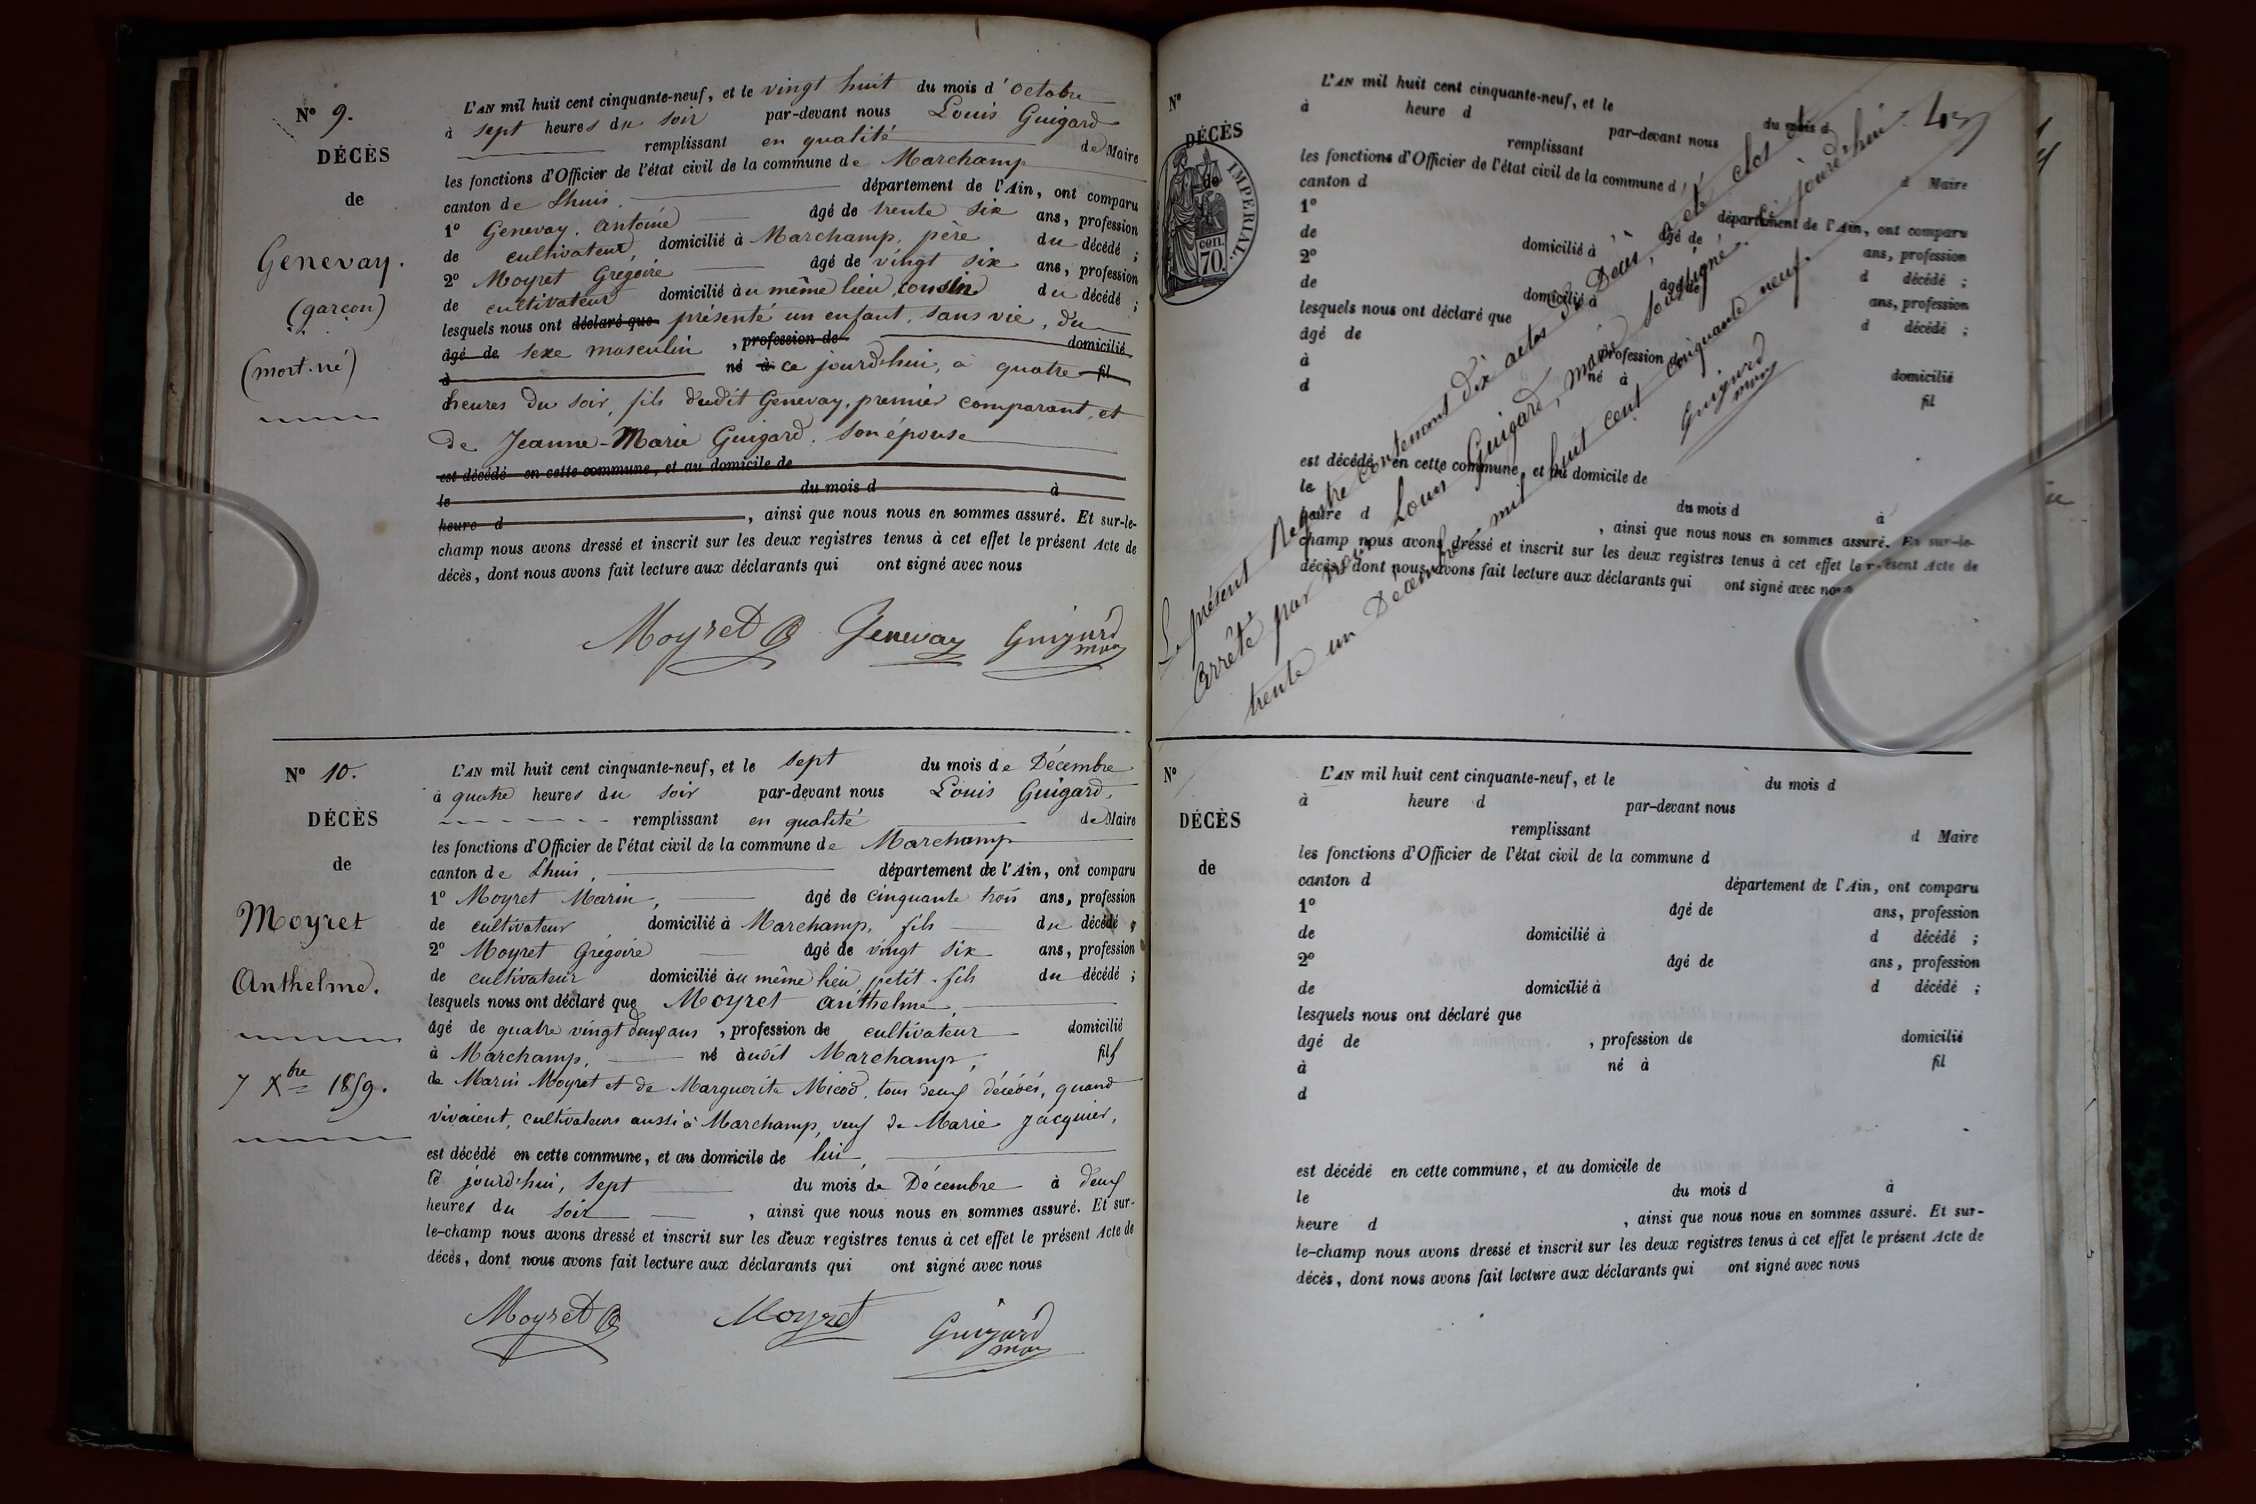 N° 9.
DÉCÈS
de
Genevay.
(garçon)
(mort-né)
L'AN mil huit cent cinquante-neuf, et le vingt huit du mois d'octobre
à sept heures du soir par-devant nous Louis Guigard
remplissant en qualité de Maire
les fonctions d'Officier de l'état civil de la commune de Marchamp
canton de Lhuis, département de l'Ain, ont comparu
1° Genevay, antoine âgé de trente six ans, profession
de cultivateur, domicilié à Marchamp, père du décédé ;
2° Moyret Grégoire âgé de vingt six ans, profession
de cultivateur domicilié au même lieu, cousin du décédé ;
lesquels nous ont déclaré que présenté un enfant, sans vie, du
âgé de sexe masculin, profession de domicilié
à né à ce jourd'hui, à quatre fil
heures du soir, fils dudit Genevay, premier comparant, et
de Jeanne-Marie Guigard, son épouse
est décédé en cette commune, et au domicile de
le du mois d à
heure d , ainsi que nous nous en sommes assuré. Et sur-le-
champ nous avons dressé et inscrit sur les deux registres tenus à cet effet le présent Acte de
décès, dont nous avons fait lecture aux déclarants qui ont signé avec nous
Moyret G Genevay Guigard
maire
N° 10.
DÉCÈS
de
Moyret
Anthelme.
7 Xbre 1859.
L'AN mil huit cent cinquante-neuf, et le sept du mois de Décembre
à quatre heures du soir par-devant nous Louis Guigard,
remplissant en qualité de Maire
les fonctions d'Officier de l'état civil de la commune de Marchamp
canton de Lhuis, département de l'Ain, ont comparu
1° Moyret Marin, âgé de cinquante trois ans, profession
de cultivateur domicilié à Marchamp, fils du décédé ;
2° Moyret Grégoire âgé de vingt six ans, profession
de cultivateur domicilié au même lieu, petit-fils du décédé ;
lesquels nous ont déclaré que Moyret anthelme,
âgé de quatre vingt deux ans, profession de cultivateur domicilié
à Marchamp, né audit Marchamp, fils
de Marin Moyret et de Marguerite Micod, tous deux décédés, quand
vivaient, cultivateurs aussi à Marchamp, veuf de Marie Jacquier,
est décédé en cette commune, et au domicile de lui,
ce jourd'hui, sept du mois de Décembre à deux
heures du soir , ainsi que nous nous en sommes assuré. Et sur-
le-champ nous avons dressé et inscrit sur les deux registres tenus à cet effet le présent Acte de
décès, dont nous avons fait lecture aux déclarants qui ont signé avec nous
Moyret G Moyret Guigard
maire
N°
DÉCÈS
de
IMPERIAL.
cen.
70.
L'AN mil huit cent cinquante-neuf, et le du mois d
à heure d par-devant nous
remplissant d Maire
les fonctions d'Officier de l'état civil de la commune d
canton d département de l'Ain, ont comparu
1° âgé de ans, profession
de domicilié à d décédé ;
2° âgé de ans, profession
de domicilié à d décédé ;
lesquels nous ont déclaré que
âgé de profession de domicilié
à né à fil
d
est décédé en cette commune, et au domicile de
le du mois d à
heure d , ainsi que nous nous en sommes assuré. Et sur-le-
champ nous avons dressé et inscrit sur les deux registres tenus à cet effet le présent Acte de
décès, dont nous avons fait lecture aux déclarants qui ont signé avec nous
Le présent Registre contenant dix actes de Décès, a été clos et
arrêté par nous Louis Guigard, maire soussigné, ce jourd'hui
trente un Décembre mil huit cent cinquante neuf.
Guigard
maire
N°
DÉCÈS
de
L'AN mil huit cent cinquante-neuf, et le du mois d
à heure d par-devant nous
remplissant d Maire
les fonctions d'Officier de l'état civil de la commune d
canton d département de l'Ain, ont comparu
1° âgé de ans, profession
de domicilié à d décédé ;
2° âgé de ans, profession
de domicilié à d décédé ;
lesquels nous ont déclaré que
âgé de , profession de domicilié
à né à fil
d
est décédé en cette commune, et au domicile de
le du mois d à
heure d , ainsi que nous nous en sommes assuré. Et sur-
le-champ nous avons dressé et inscrit sur les deux registres tenus à cet effet le présent Acte de
décès, dont nous avons fait lecture aux déclarants qui ont signé avec nous